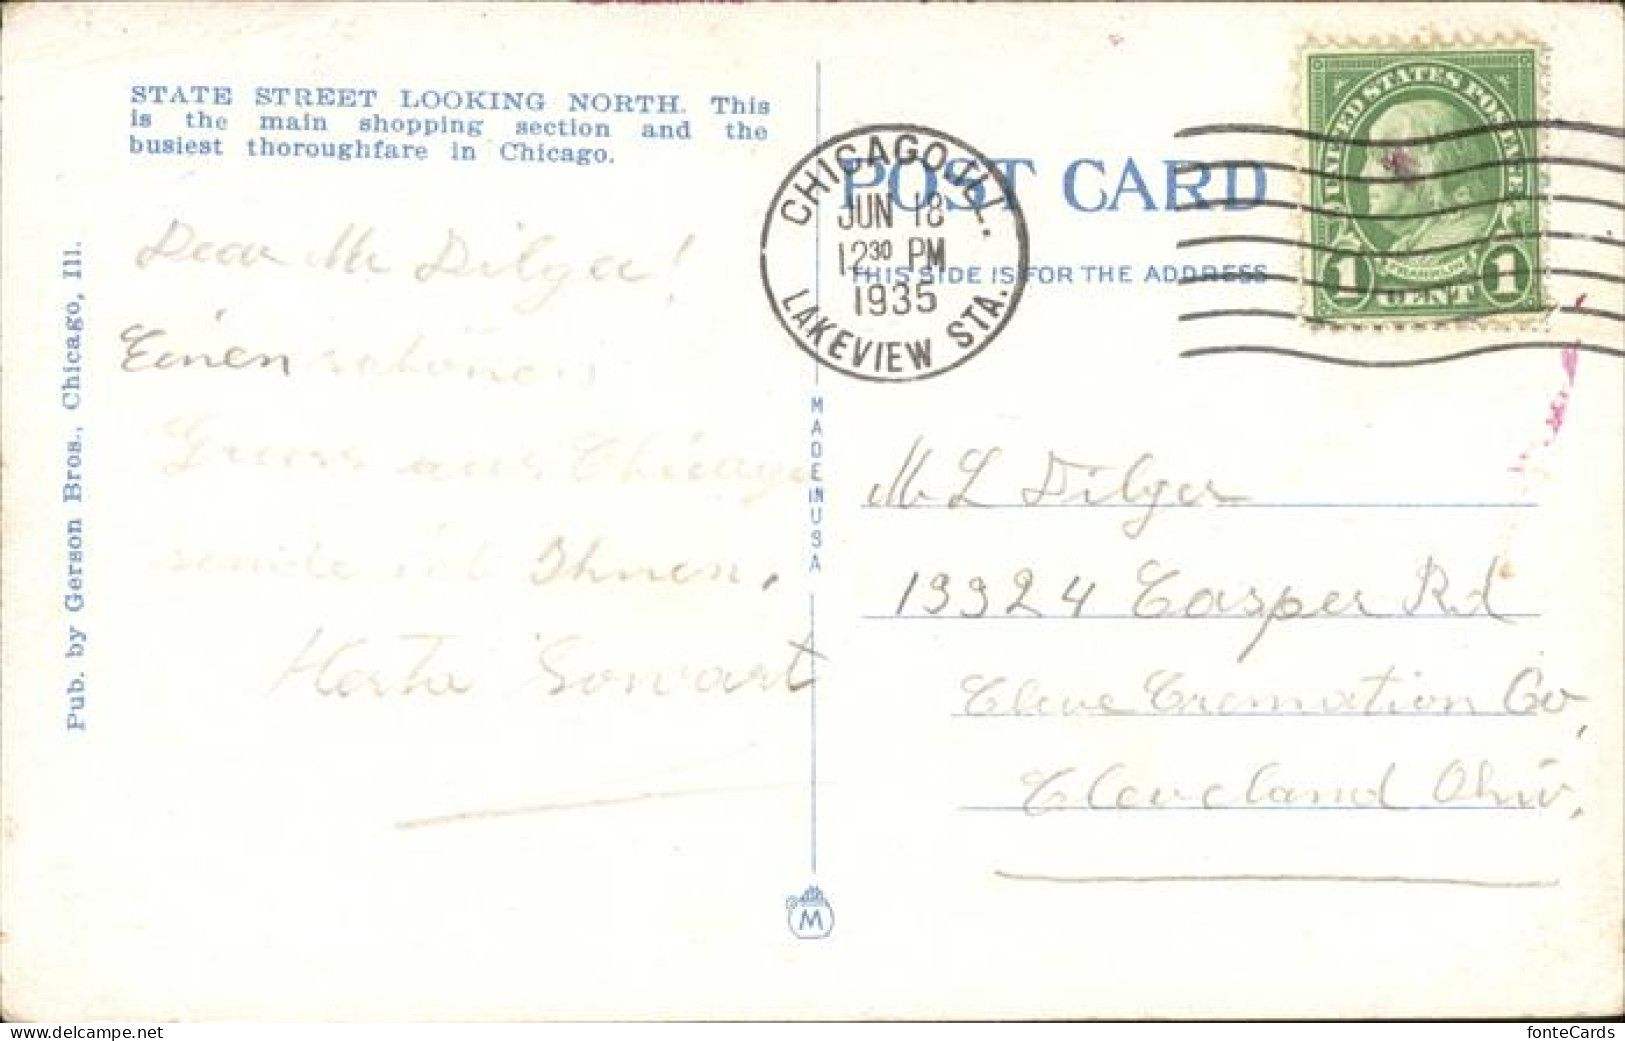 STATE STREET LOOKING NORTH. This
is the main shopping section and the
busiest thoroughfare in Chicago.
Dear Mr Dilger!
Einen schönen
Gruss aus Chicago
sende ich Ihnen,
Herta
Pub. by Gerson Bros., Chicago, Ill.
MADE IN USA
M
POST CARD
THIS SIDE IS FOR THE ADDRESS
CHICAGO, ILL.
JUN 18
12 30 PM
1935
LAKEVIEW STA.
UNITED STATES POSTAGE
FRANKLIN
1 CENT 1
Mr L Dilger
19924 Casper Rd
Cleve Cremation Co,
Cleveland Ohio,
www.delcampe.net
fonteCards